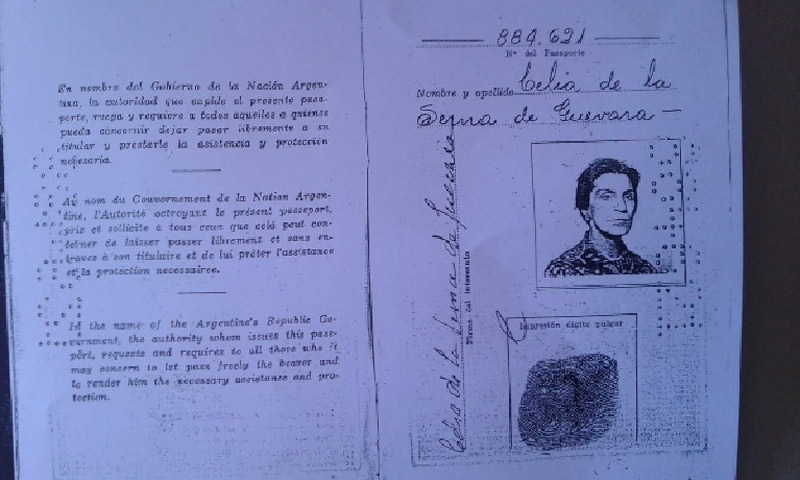 En nombre del Gobierno de la Nación Argen-
tina, la autoridad que expide el presente pasa-
porte, ruega y requiere a todos aquellos a quienes
pueda concernir dejar pasar libremente a su
titular y prestarle la asistencia y protección
necesaria.
Au nom du Gouvernement de la Nation Argen-
tine, l'Autorité octroyant le présent passeport,
prie et sollicite a tous ceux que celá peut con-
cerner de laisser passer librement et sans en-
traves à son titulaire et de lui prêter l'assistance
et la protection necessaires.
In the name of the Argentine's Republic Go-
vernment, the authority whom issues this pass-
port, requests and requires to all those who it
may concern to let pass freely the bearer and
to render him the necessary assistance and pro-
tection.
884.621
Nº del Pasaporte
Nombre y apellido Celia de la
Serna de Guevara
Celia de la Serna de Guevara
Firma del interesado
Impresión dígito pulgar